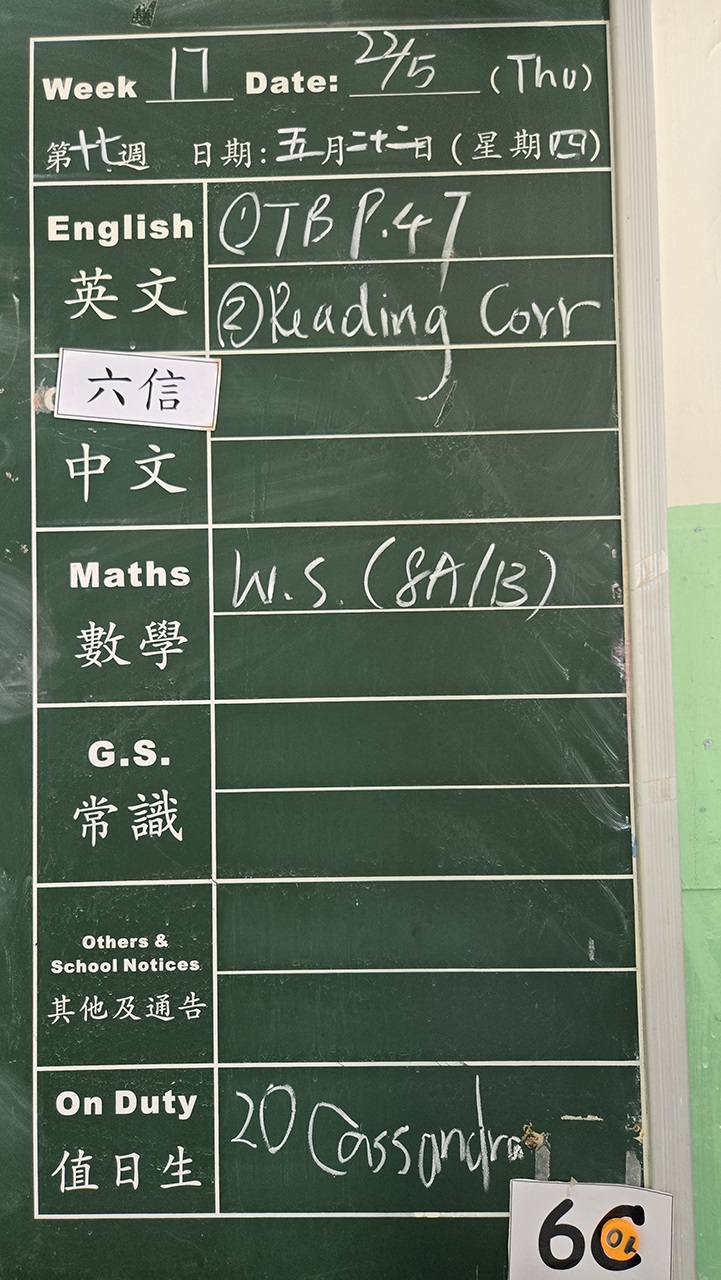 Week 17 Date: 22/5 (Thu)
第十七週 日期:五月二十二日(星期四)
English ①TB P.47
英文 ②Reading Corr
六信
中文
Maths W.S. (8A/B)
數學
G.S.
常識
Others &
School Notices
其他及通告
On Duty 20 Cassandra
值日生
6C